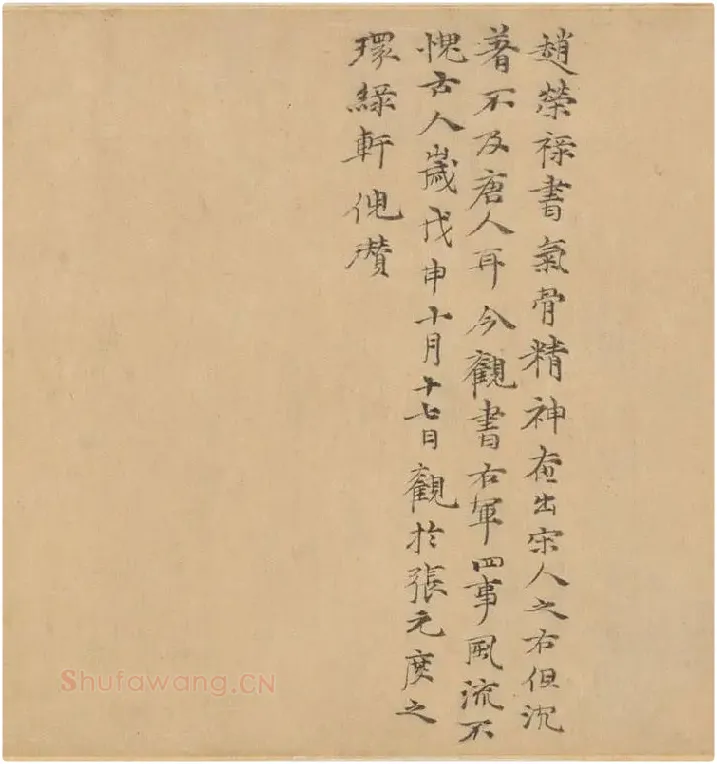 趙榮祿書氣骨精神直出宋人之右但沉
著不及唐人耳今觀書右軍四事風流不
愧古人歲戊申十月十七日觀於張元度之
環綠軒倪瓚
Shufawang.CN